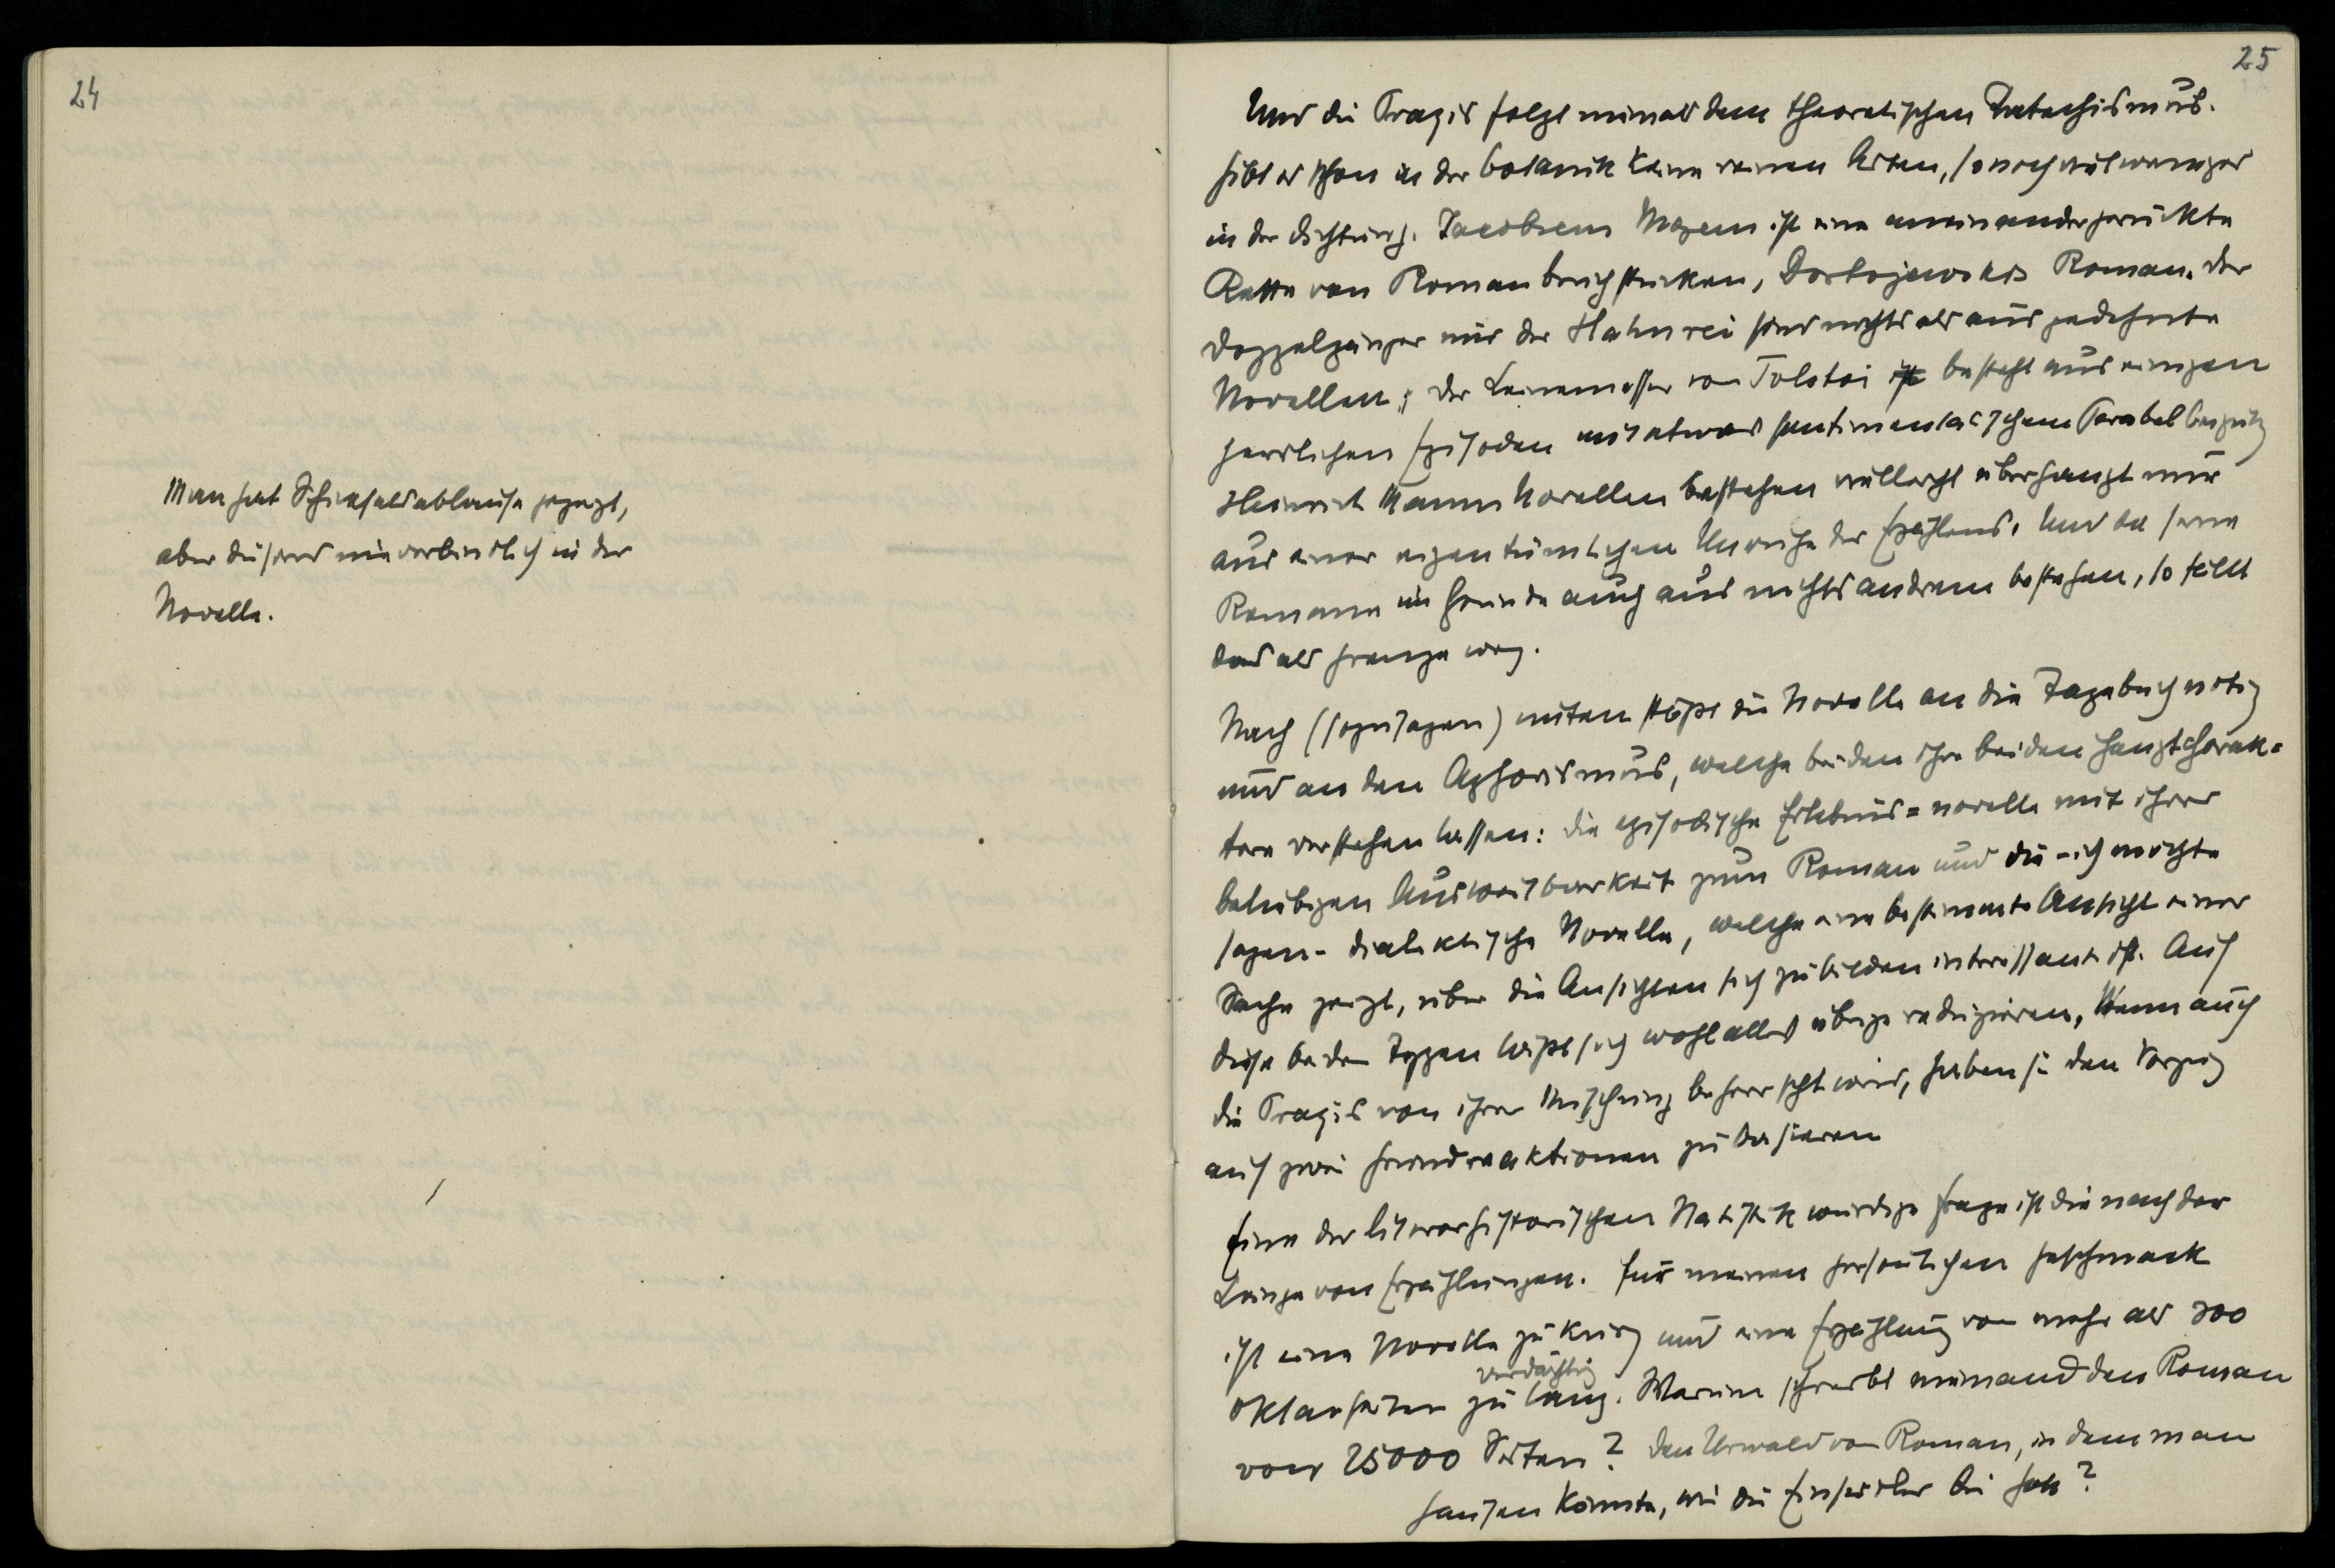 24
Man hat Schicksalsabläufe gezeigt,
aber die sind nie verbindlich in der
Novelle.
25
Und die Praxis folgt niemals dem theoretischen Katechismus.
Gibt es schon in der Botanik keine reinen Arten, so noch viel weniger
in der Dichtung. Jacobsens Mogens ist eine aneinandergerückte
Kette von Romanbruchstücken, Dostojewskis Roman. der
Doppelgänger und der Hahnrei sind nichts als ausgedehnte
Novellen; der Leinemesser von Tolstoi ist besteht aus einigen
herrlichen Episoden mit etwas sentimentalischem Parabel
Heinrich Manns Novellen bestehen vielleicht überhaupt nur
aus einer eigentümlichen Unruhe des Erzählens. Und da seine
Romane im Grunde auch aus nichts andrem bestehen, so fällt
das als Grenze weg.
Nach (sozusagen) unten stößt die Novelle an die Tagebuchnotiz
und an den Aphorismus, welche beiden ihre beiden Hauptcharak=
tere verstehen lassen: die episodische Erlebnis=novelle mit ihrer
beliebigen Ausweitbarkeit zum Roman und die - ich möchte
sagen - dialektische Novelle, welche eine bestimmte Ansicht einer
Sache zeigt, über die Ansichten sich zu bilden interessant ist. Auf
diese beiden Typen läßt sich wohl alles übrige reduzieren, Wenn auch
die Praxis von ihrer Mischung beherrscht wird, haben sie den Vorzug
auf zwei Grundreaktionen zu basieren
Eine der literarhistorischen Statistik würdige Frage ist die nach der
Länge von Erzählungen. Für meinen persönlichen Geschmack
ist eine Novelle zu kurz und eine Erzählung von mehr als 200
verdächtig
Oktavseiten zu lang. Warum schreibt niemand den Roman
von 25000 Seiten? Den Urwald von Roman, in dem man
hausen könnte, wie die Einsiedler bei Gott?